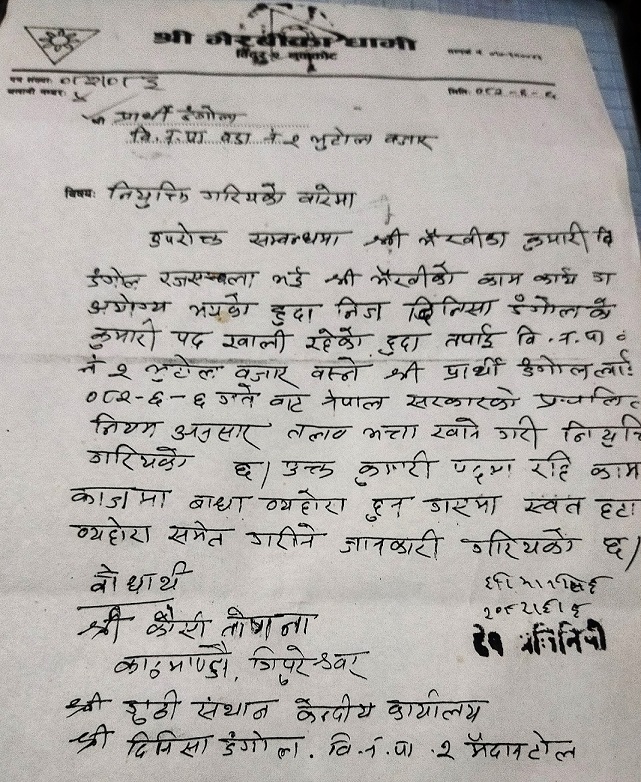 श्री भैरवीको धामी
विदुर २ नुवाकोट
पत्र संख्या: ०८२/०८३
चलानी नम्बर: ५
मिति: ०८२-६-६
प्रार्थी डंगोल
वि.न.पा वडा नं २ भुटोल बजार
विषय: नियुक्ति गरियको बारेमा
उपरोक्त सम्बन्धमा श्री भैरवीका कुमारी
डंगोल रजस्वला भई श्री भैरवीको काम कार्य
अयोग्य भएको हुदा निज दिनिसा डंगोलके
कुमारी पद खाली रहेको हुदा तपाई वि.न.पा
नं २ भुटोल बजार बस्ने श्री प्रार्थी डंगोल
०८२-६-६ गते बाट नेपाल सरकारको
नियम अनुसार तलब भत्ता खाने गरी
गरियको छ। उक्त कुमारी पदमा रहि काम
काजमा बाधा व्यहोरा हुन गएमा स्वत
व्यहोरा समेत गरीने जानकारी गरियको छ।
बोधार्थ
श्री कौसी तोषाना
काठमाण्डौ, त्रिपुरेश्वर
श्री गुठी संस्थान केन्द्रीय कार्यालय
श्री दिनिसा डंगोल. वि.न.पा.२ मैदानटोल